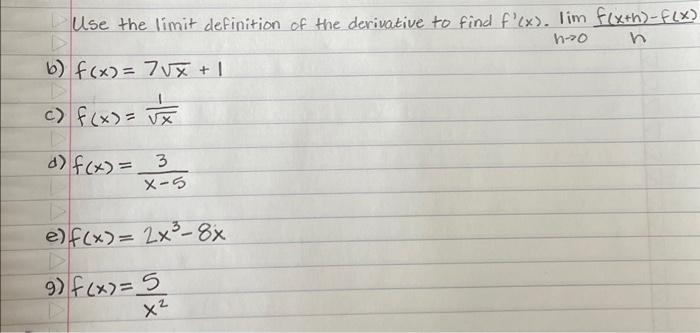 Use the limit definition of the derivative to find f'(x). lim h→0 f(x+h)-f(x) / h
b) f(x) = 7√x + 1
c) f(x) = 1/√x
d) f(x) = 3/(x-5)
e) f(x) = 2x³ - 8x
g) f(x) = 5/x²